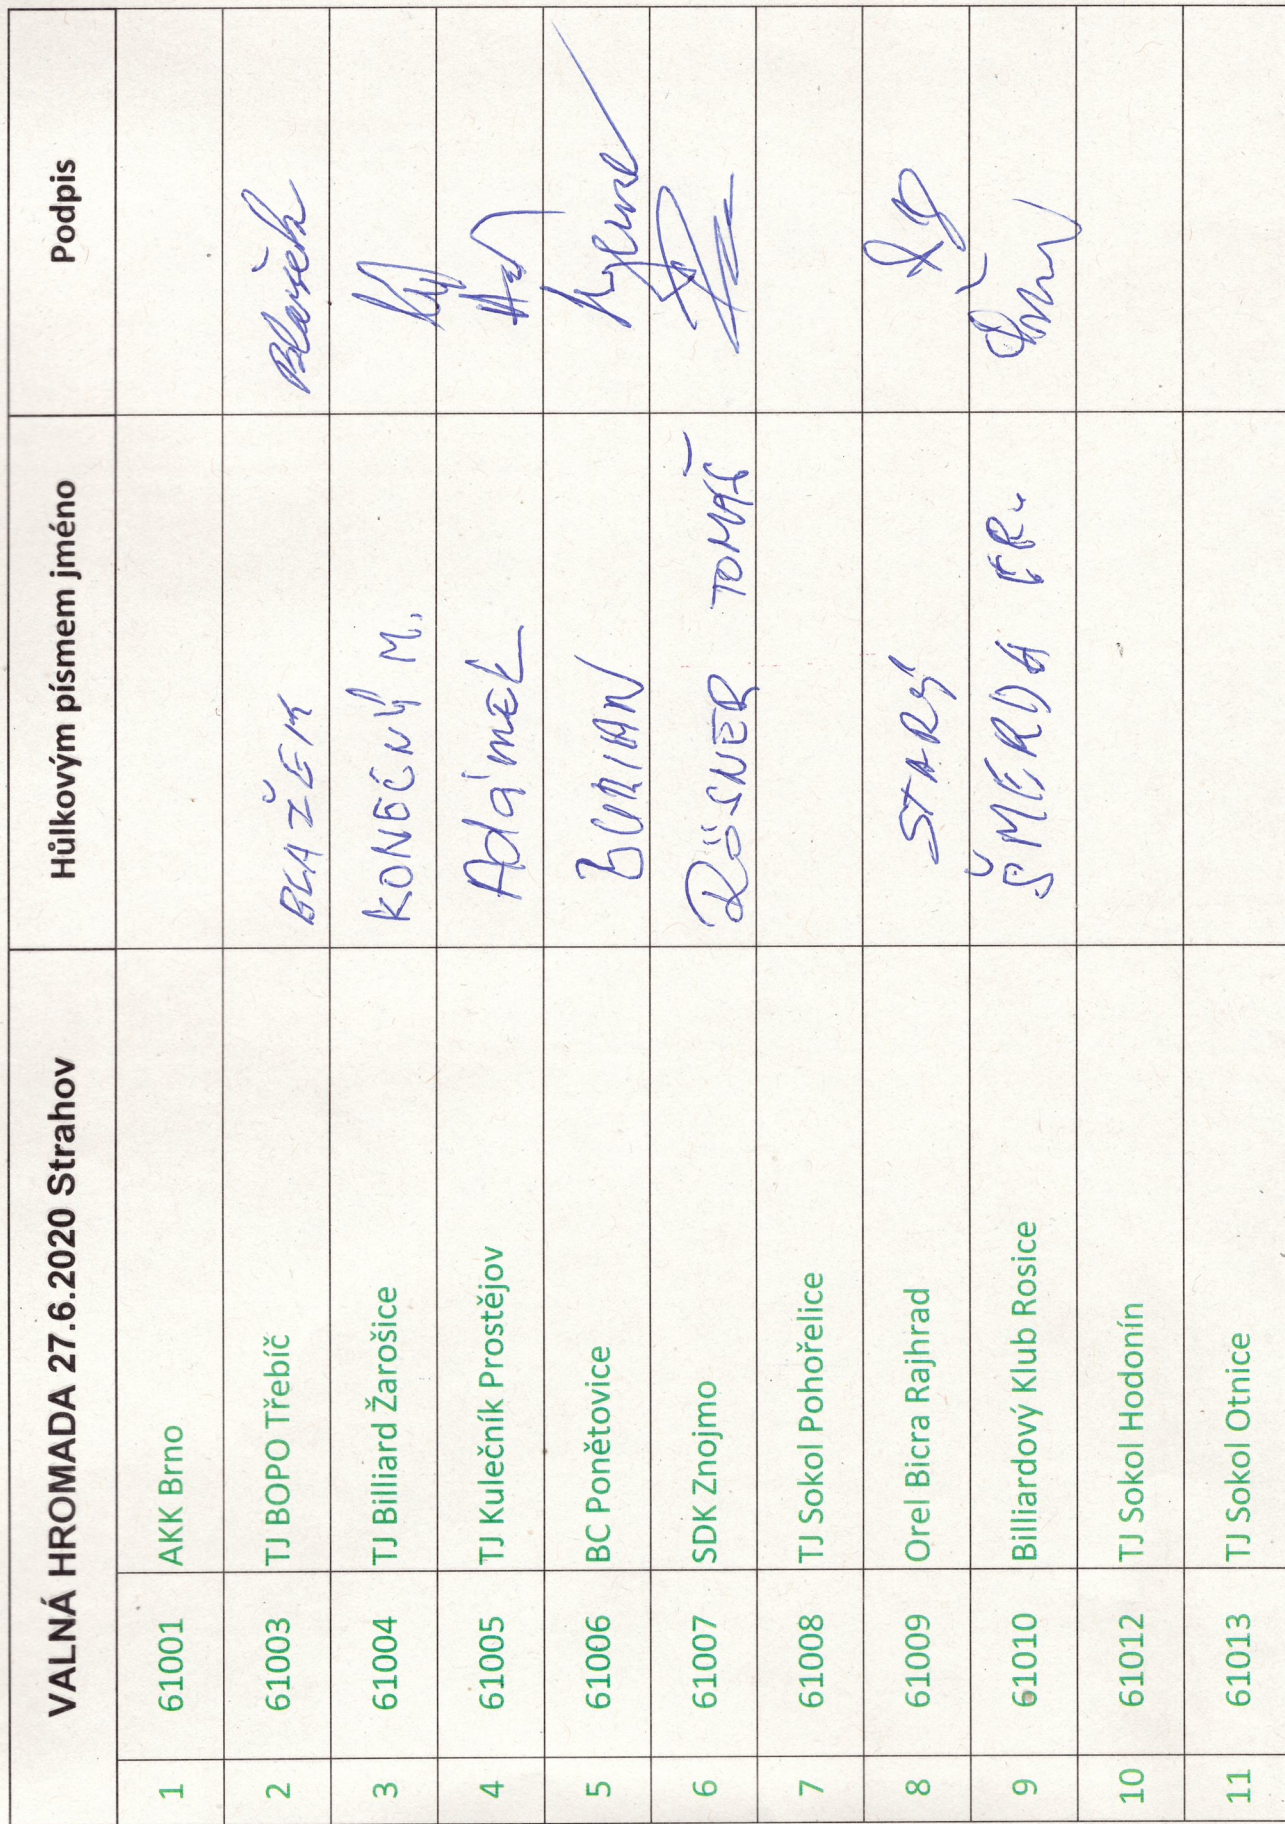 VALNÁ HROMADA 27.6.2020 Strahov Hůlkovým písmem jméno Podpis
1 61001 AKK Brno
2 61003 TJ BOPO Třebíč BLAŽEK Blažek
3 61004 TJ Billiard Žarošice KONEČNÝ M.
4 61005 TJ Kulečník Prostějov Adámek
5 61006 BC Ponětovice BURIAN
6 61007 SDK Znojmo RÖSNER TOMÁŠ
7 61008 TJ Sokol Pohořelice
8 61009 Orel Bicra Rajhrad STARÝ
9 61010 Billiardový Klub Rosice ŠMERDA FR.
10 61012 TJ Sokol Hodonín
11 61013 TJ Sokol Otnice